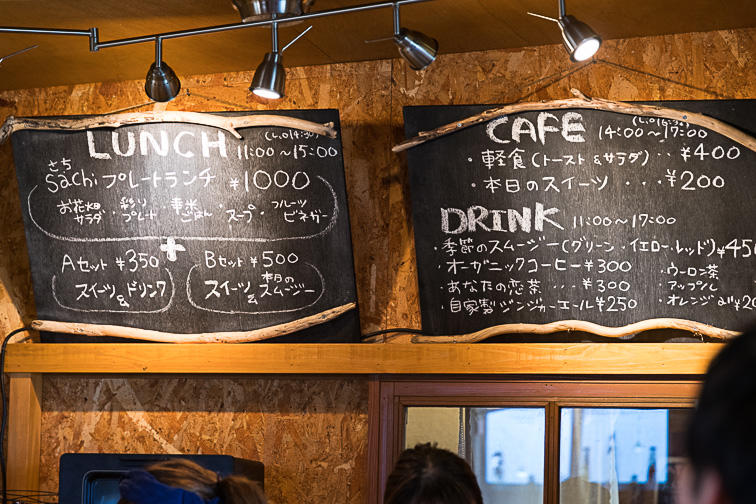 LUNCH (L.O14:30)
11:00〜15:00
さち
Sachiプレートランチ ¥1000
お花畑サラダ ・彩りプレート ・幸米ごはん ・スープ ・フルーツビネガー
+
Aセット ¥350
スイーツ&ドリンク
Bセット ¥500
スイーツ&本日のスムージー
CAFE (L.O16:30)
14:00〜17:00
・軽食(トースト&サラダ)‥ ¥400
・本日のスイーツ ・・・ ¥200
DRINK 11:00〜17:00
・季節のスムージー(グリーン・イエロー・レッド)¥45
・オーガニックコーヒー ¥300
・あなたの恋茶 ・・・ ¥300
・自家製ジンジャーエール ¥250
・ウーロン茶
・アップル
・オレンジ all ¥20